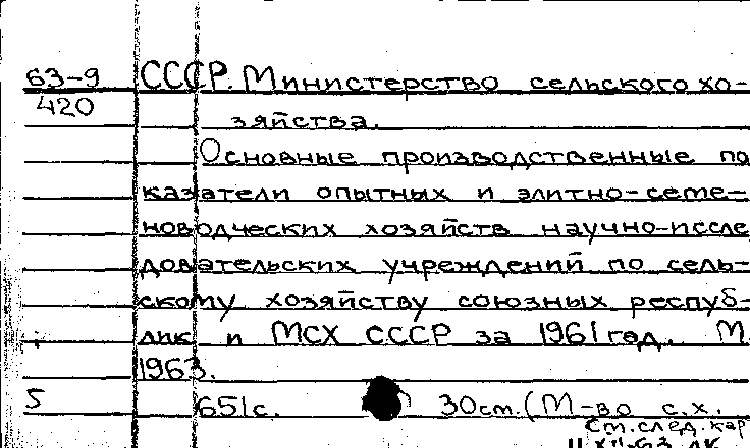 63-9 СССР. Министерство сельского хо-
420
зяйства.
Основные производственные по
казатели опытных и элитно-семе-
новодческих хозяйств научно-иссле
довательских учреждений по сель-
скому хозяйству союзных респуб-
лик и МСХ СССР за 1961 год. М
1963.
5 651с. 30см. (М-во с.х.
См. след. кар